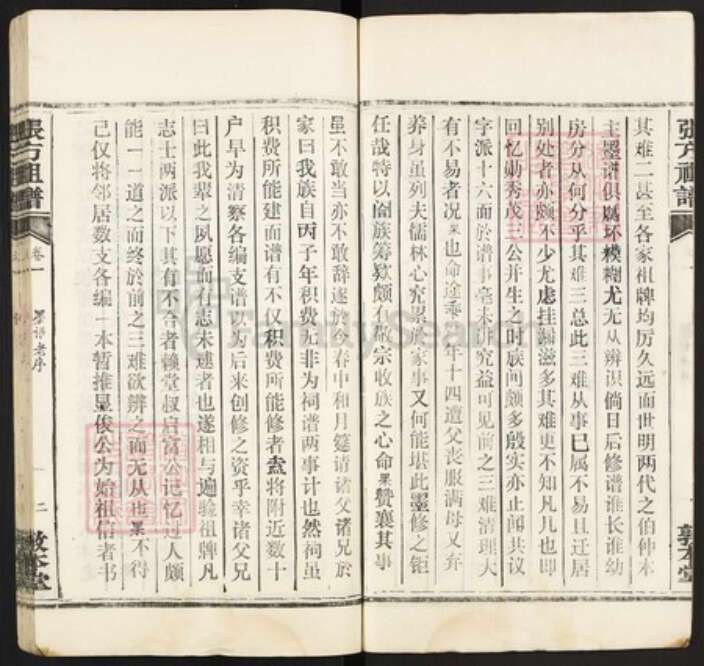 其难二甚至各家祖牌均历久远面世明两代之伯仲本
主墨谱俱属坏模糊尤无从辨识倘日后修谱谁长谁幼
房分从何分乎其难三总此三难从事已属不易且迁居
别处者亦颇不少尤虑挂漏滋多其难更不知凡几也即
回忆勋秀茂三公并生之时族间颇多殷实亦止闻共议
字派十六面於谱事毫未讲究益可见前之三难清理大
有不易者况 也命途乖 年十四遭父丧服满母又弃
养身虽列夫儒林心究 於家事又何能堪此墨修之钜
任哉特以阖族筹欵颇有敬宗收族之心命 赞襄其事
虽不敢当亦不敢辞遂於今春中和月筵请诸父诸兄於
家曰我族自丙子年积费无非为祠谱两事计也然祠虽
积费所能建面谱有不仅积费所能修者盍将附近数十
户早为清察各编支谱以为后来创修之资乎幸诸父兄
曰此我辈之夙愿而有志未逮者也遂相与遍验祖牌凡
志士两派以下其有不合者赖堂叔启富公记忆过人颇
能一一道之面终於前之三难欲辨之面无从也 不得
己仅将邻居数支各编一本暂推显俊公为始祖信者书
張方祖譜
卷一
墨谱老序
二
敦本堂
張方祖譜
敦本堂
FamilySearch